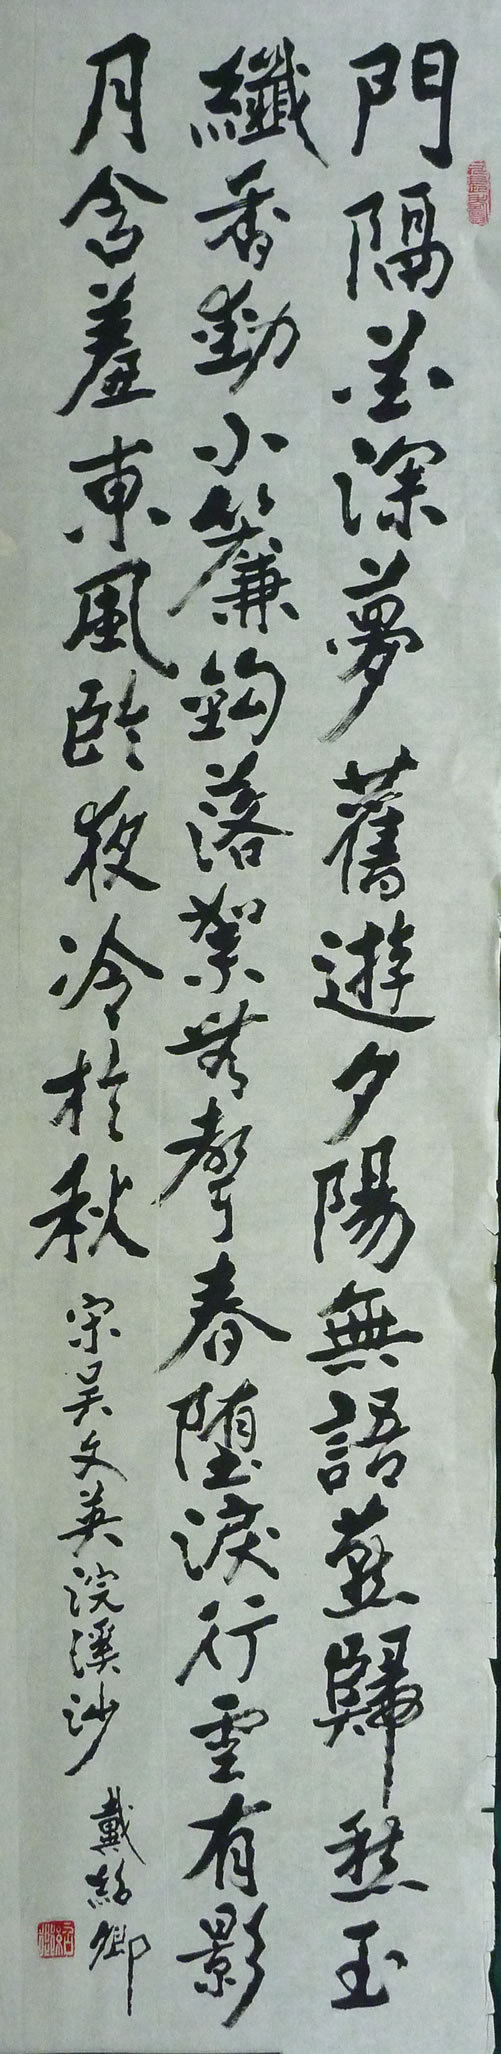 門隔花深夢舊遊夕陽無語燕歸愁玉
纖香動小簾鈎落絮無聲春墮淚行雲有影
月含羞東風臨夜冷於秋
宋吳文英浣溪沙
戴紹卿